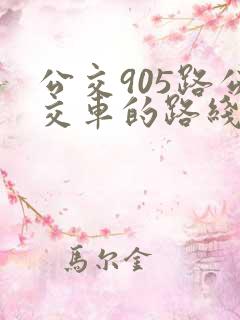 公交905路公
交車的路綫
馬尔金